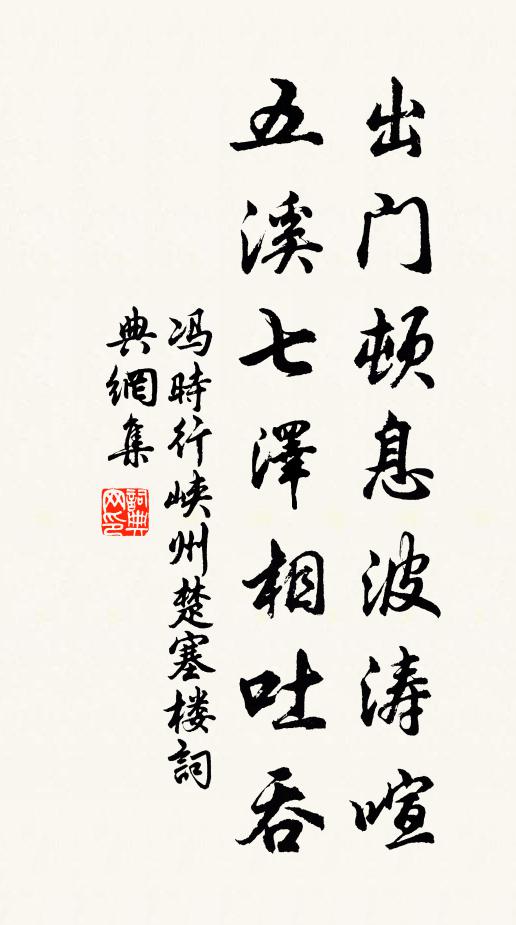 出门顿息波涛喧
五溪七澤相吐吞
冯時行峡州楚塞楼詞
典網集
詞典网印